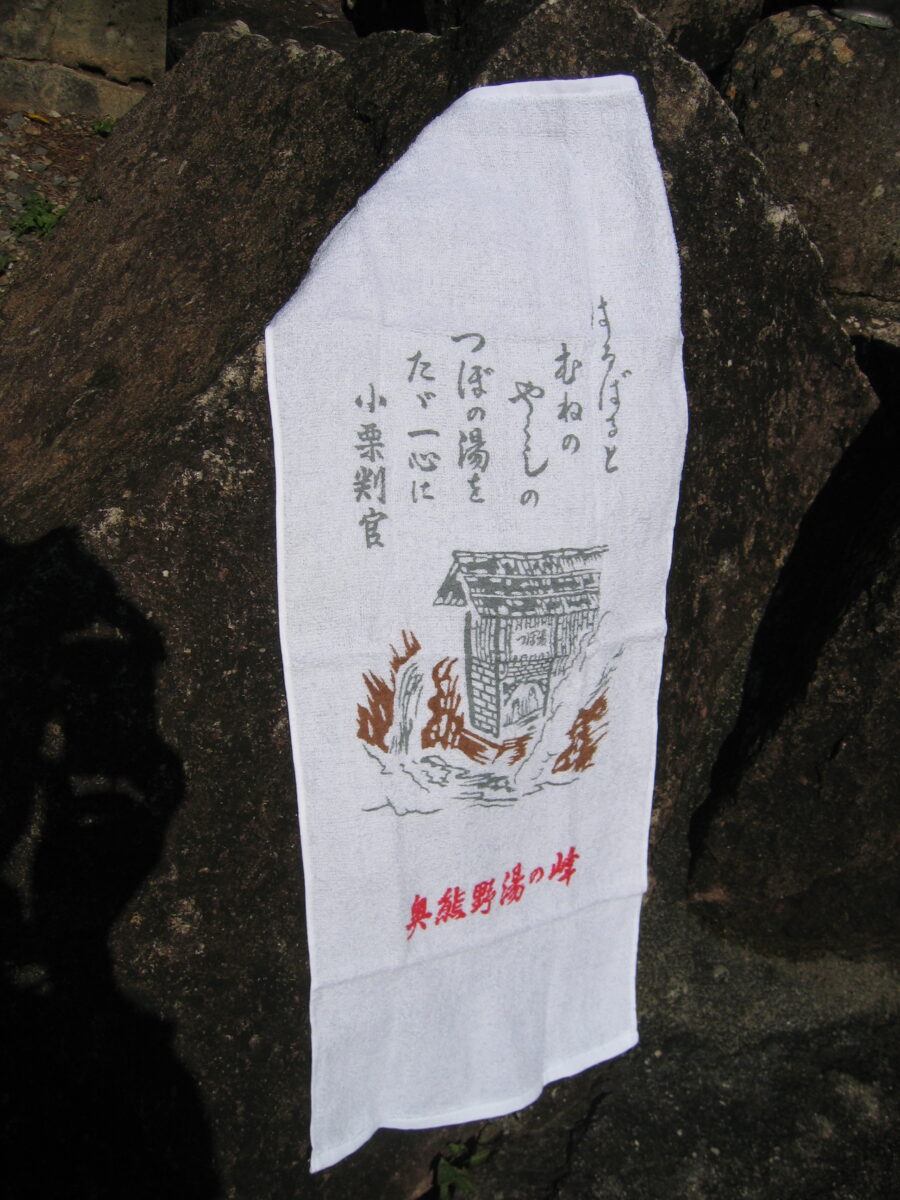 はろばろと
むねの
やくしの
つぼの湯を
たゞ一心に
小栗判官
つぼ湯
奥熊野湯の峰